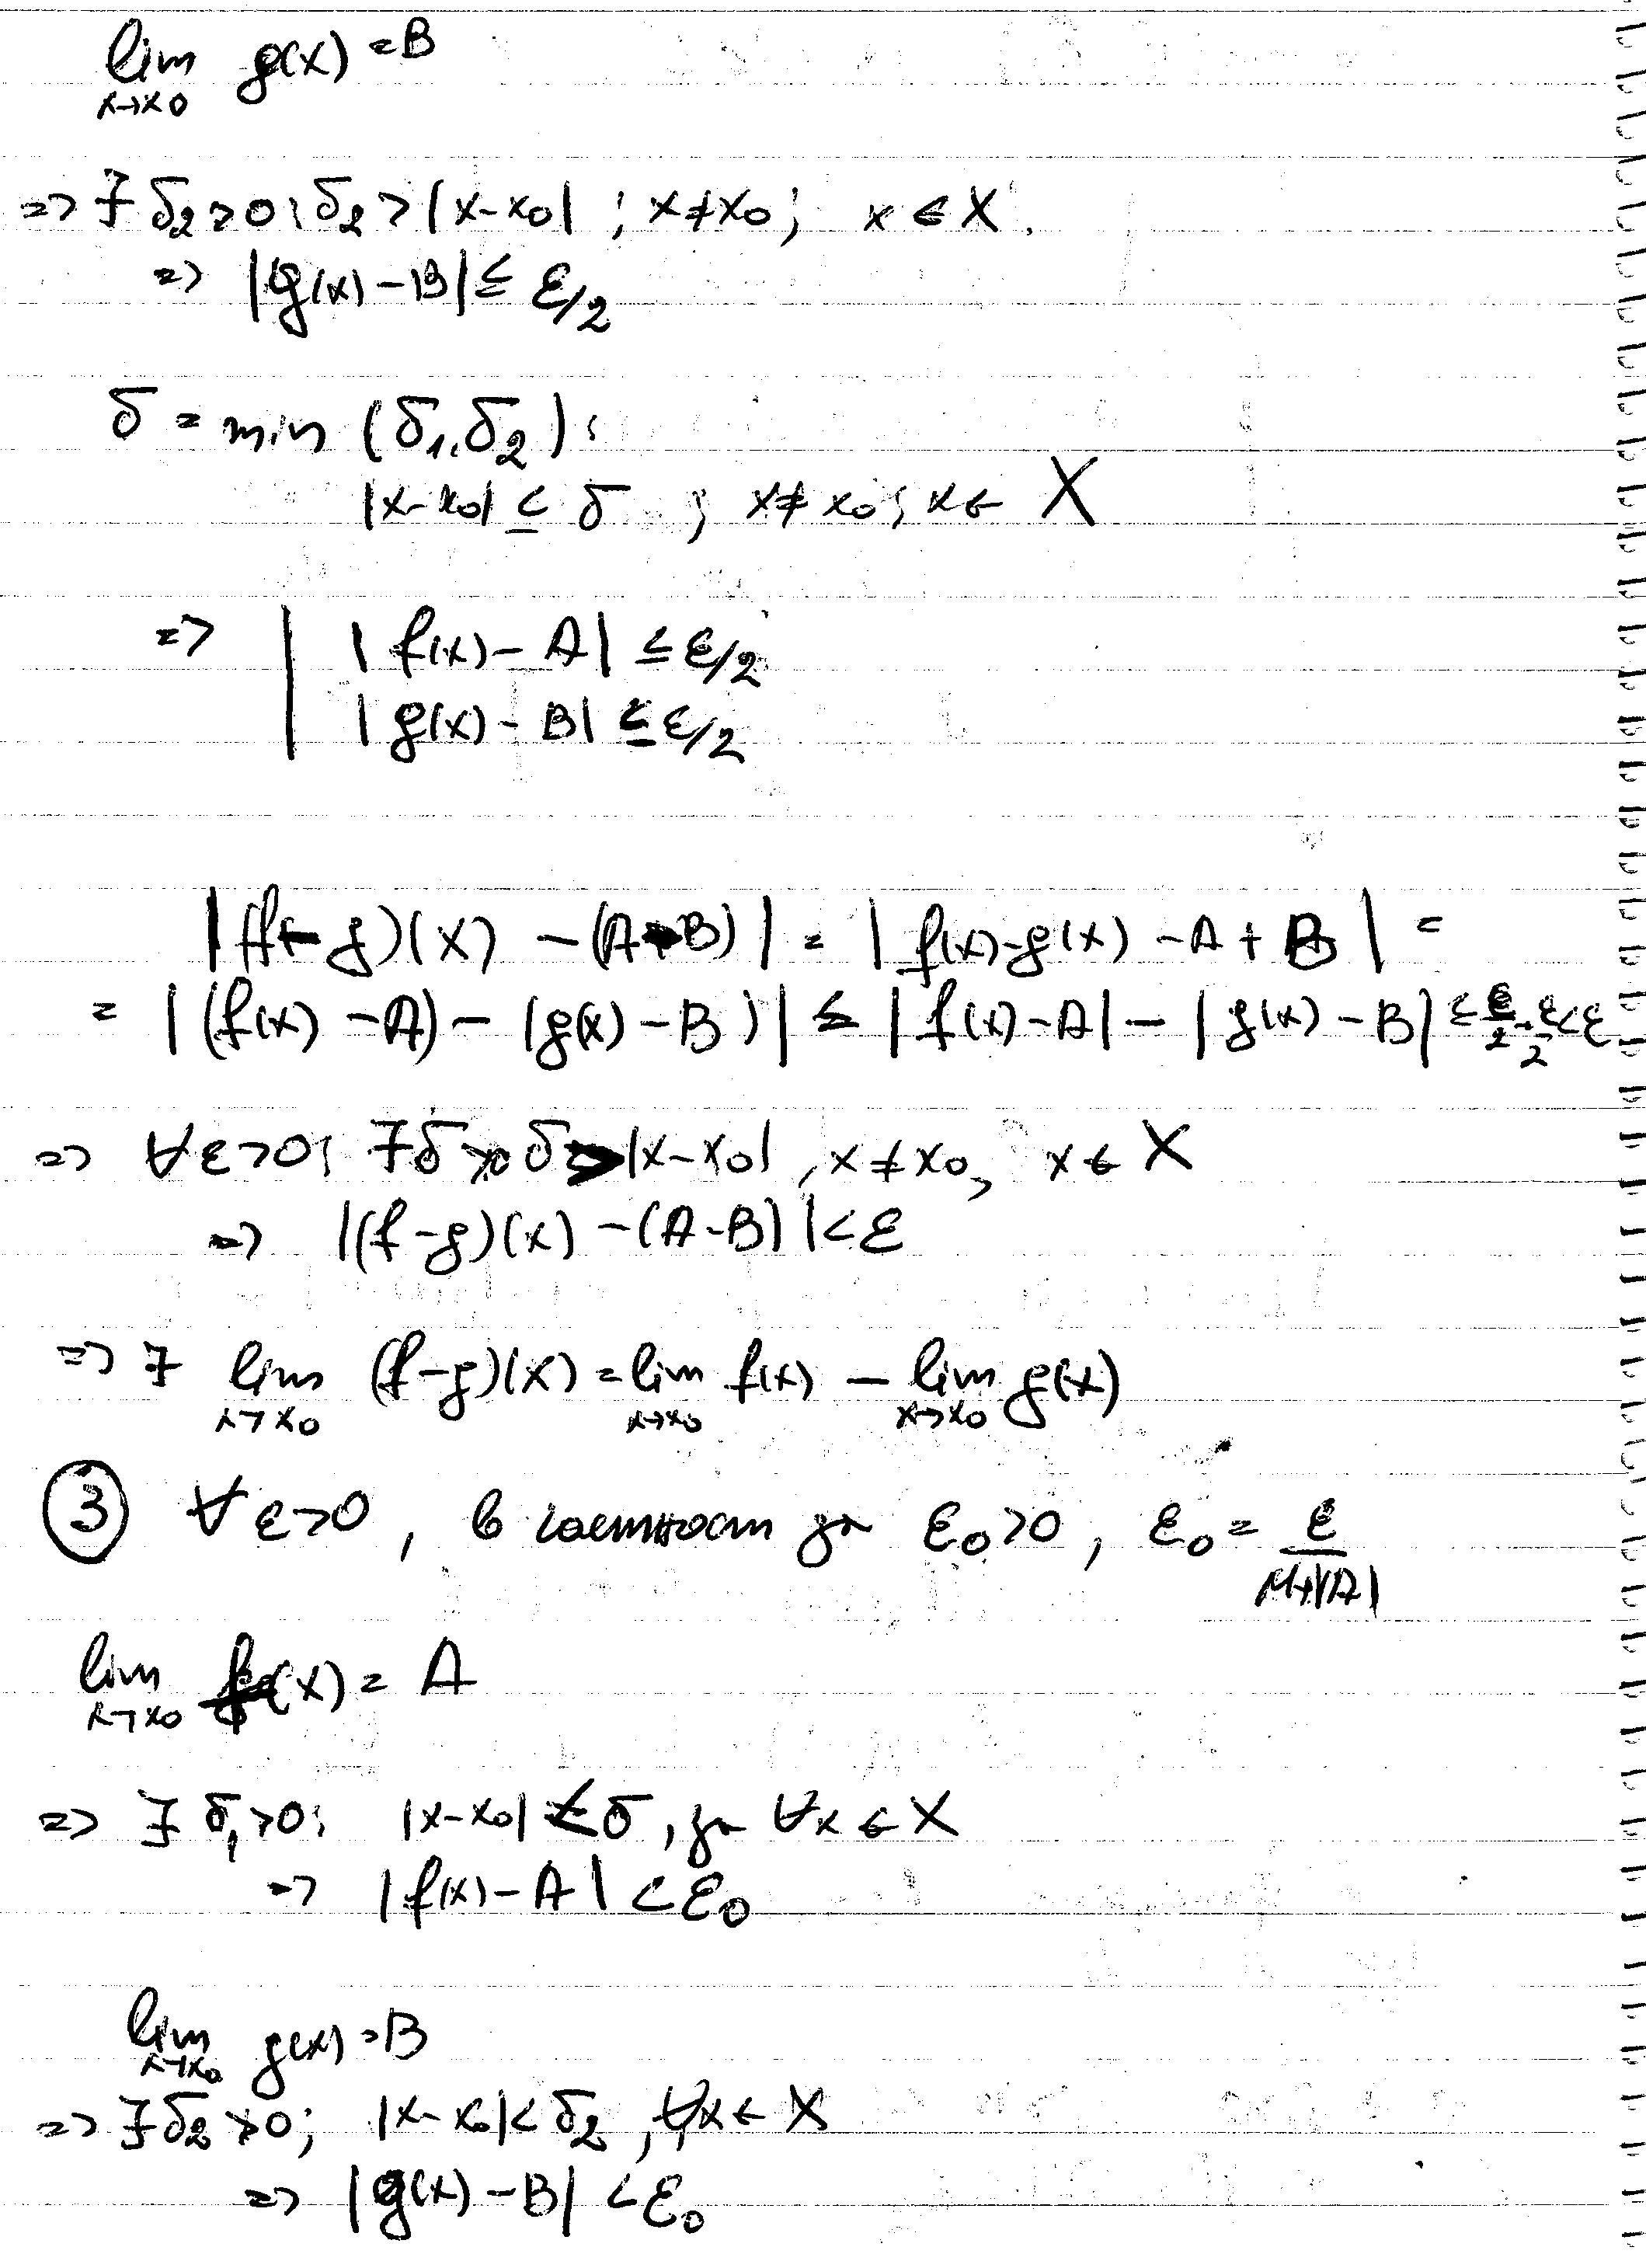 lim g(x) = B
x→x0
=> ∃ δ2>0: δ2 > |x-x0| ; x≠x0; x ∈ X.
=> |g(x)-B| ≤ ε/2
δ = min (δ1, δ2):
|x-x0| ≤ δ ; x≠x0; x∈ X
=> | |f(x)-A| ≤ ε/2
| |g(x)-B| ≤ ε/2
|(f-g)(x) -(A-B)| = |f(x)-g(x) -A+B| =
= |(f(x)-A)-(g(x)-B)| ≤ |f(x)-A|-|g(x)-B| ≤ ε/2 - ε/2 < ε
=> ∀ε>0: ∃δ>0 δ>|x-x0|, x≠x0, x∈X
=> |(f-g)(x) -(A-B)| < ε
=> ∃ lim (f-g)(x) = lim f(x) - lim g(x)
x→x0 x→x0 x→x0
③ ∀ε>0, в частност за ε0>0, ε0 = ε/(M+|A|)
lim f(x) = A
x→x0
=> ∃ δ1>0: |x-x0| < δ, за ∀x∈X
=> |f(x)-A| < ε0
lim g(x) = B
x→x0
=> ∃δ2>0; |x-x0|<δ2, ∀x∈X
=> |g(x)-B| < ε0